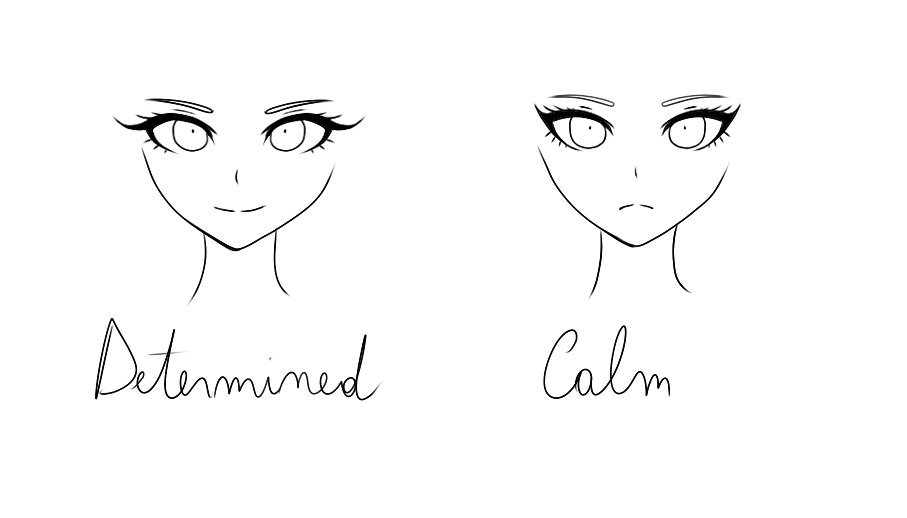 Determined
Calm